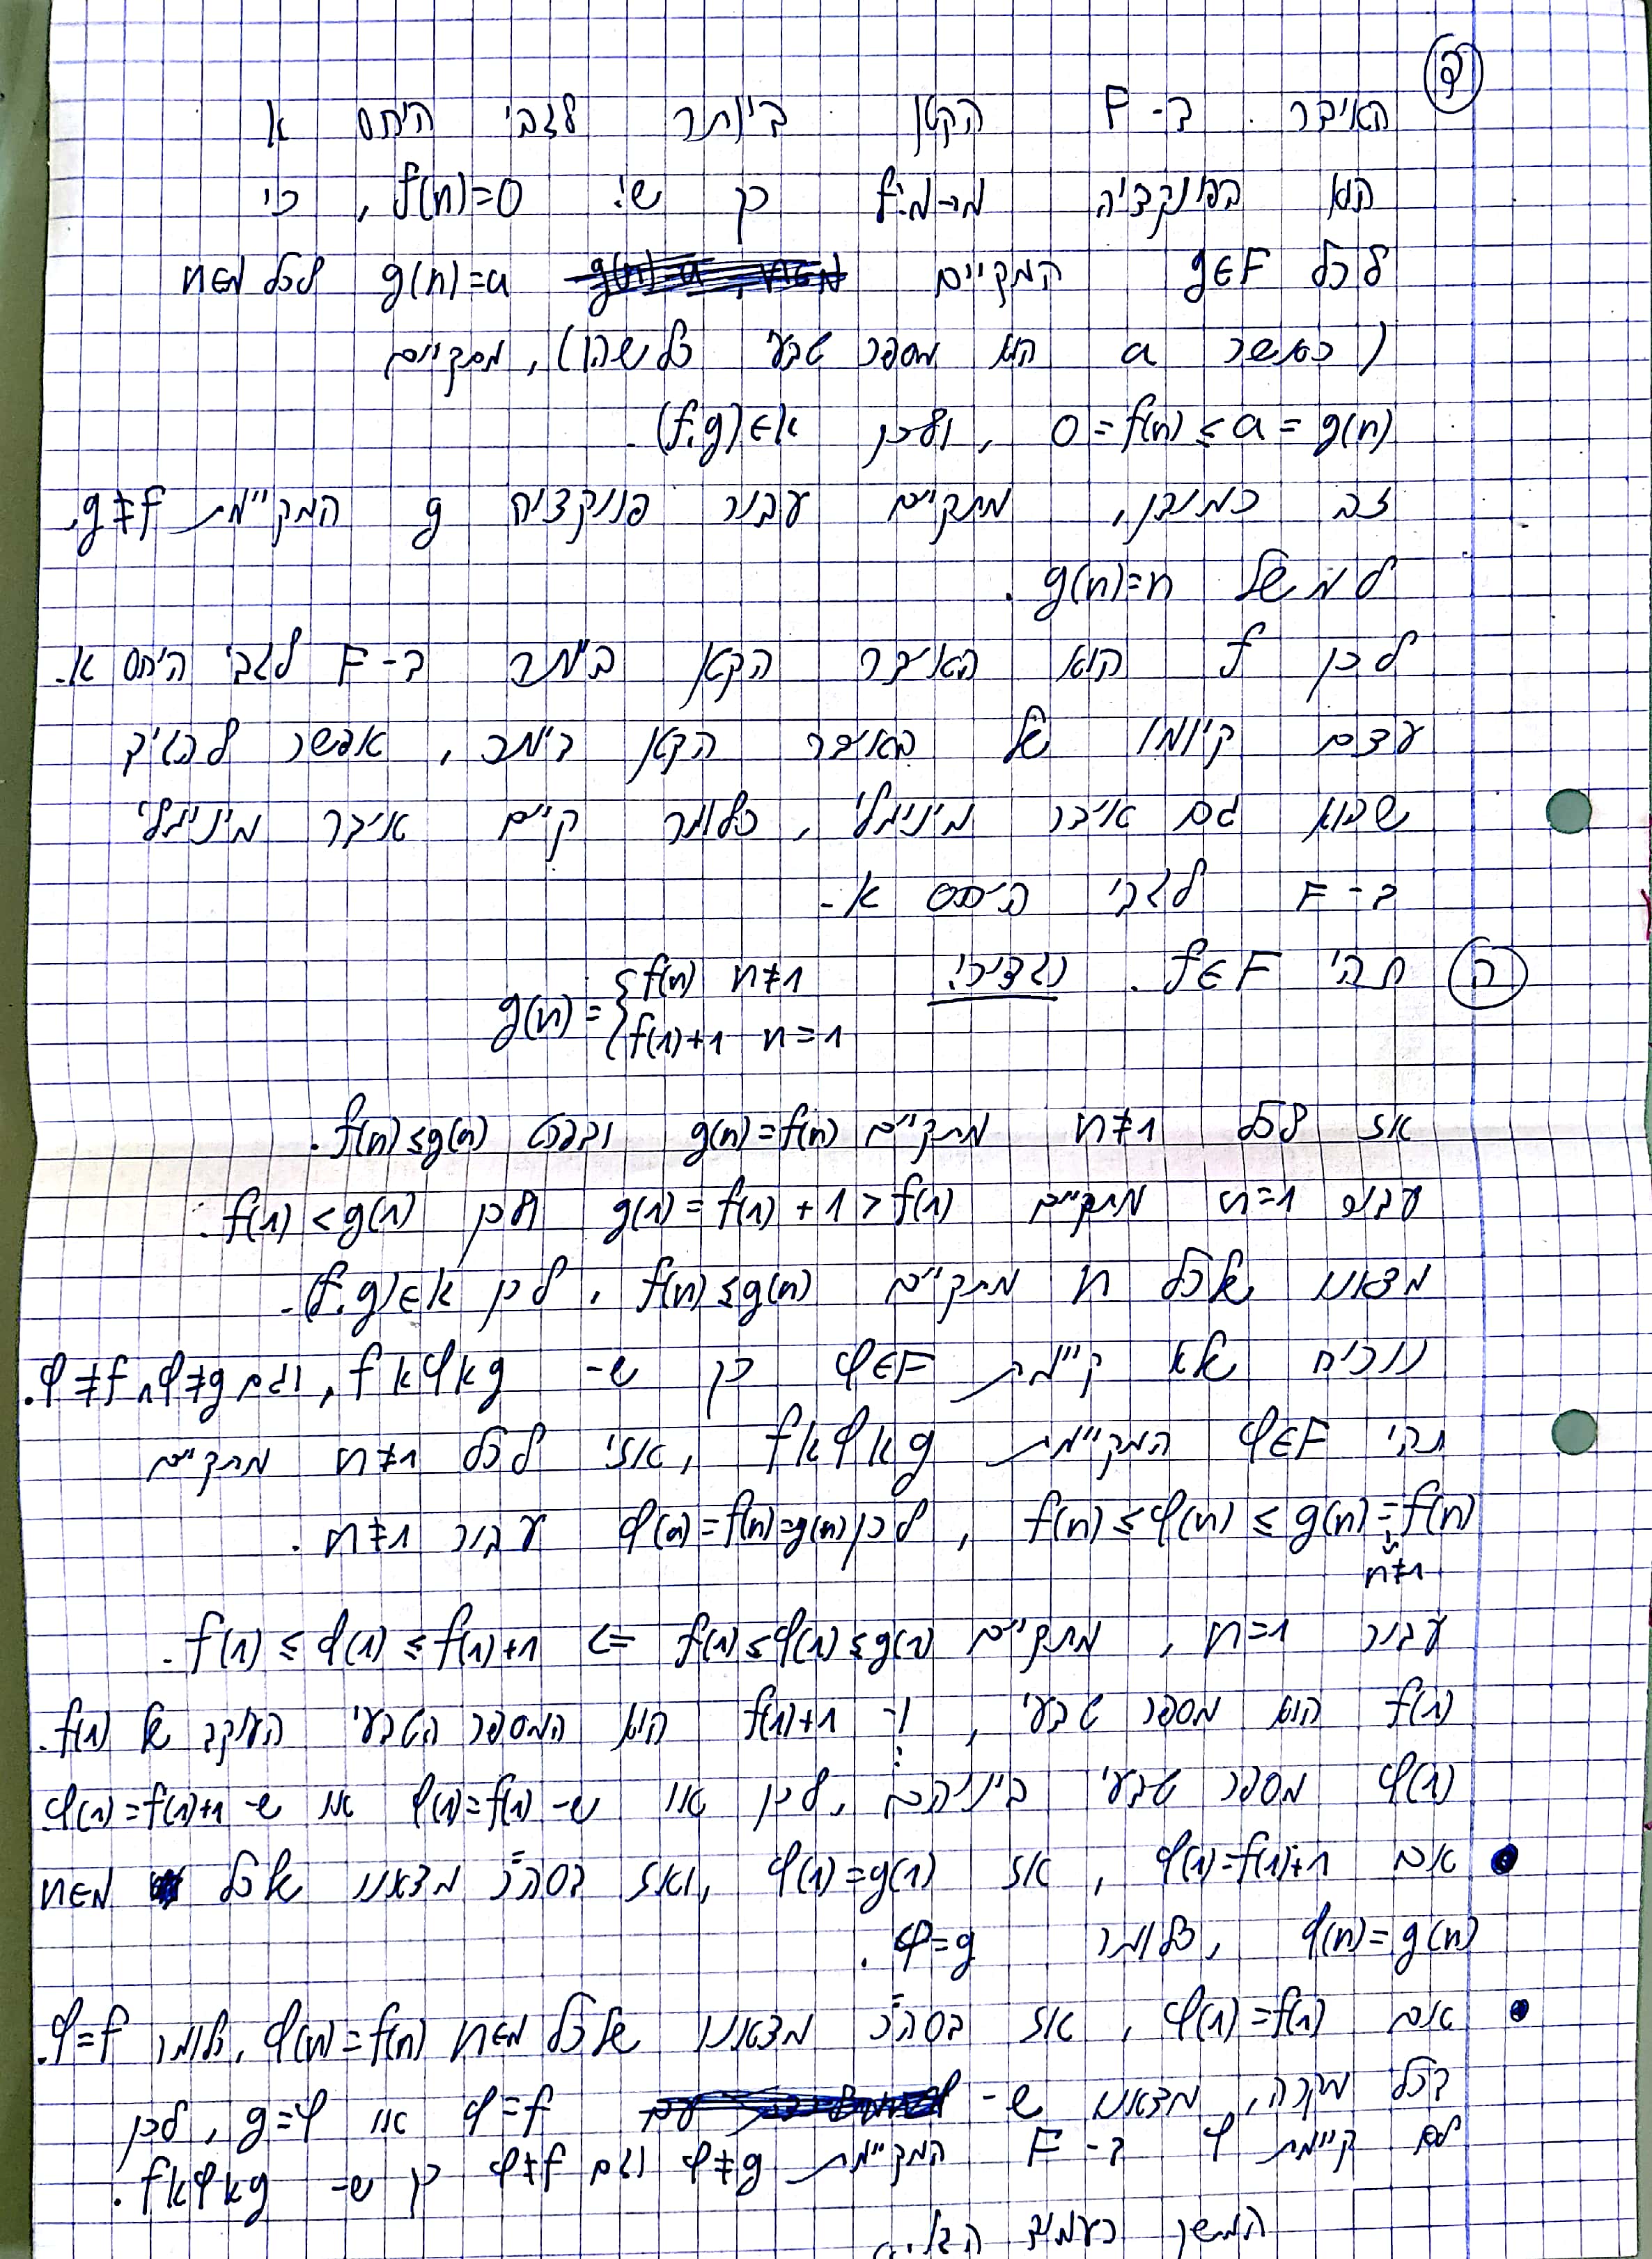 ד
האיבר ב- F הקטן ביותר לגבי היחס א
הוא הפונקציה f:ℕ→ℕ כך ש: f(n)=0, כי
לכל g∈F המקיים g(n)=a לכל n∈ℕ
(כאשר a הוא מספר טבעי כלשהו), מתקיים
0=f(n)≤a=g(n), ולכן (f,g)∈א.
זה כמובן, מתקיים עבור פונקציה g המקיימת g≠f.
למשל g(n)=n.
לכן f הוא האיבר הקטן ביותר ב- F לגבי היחס א.
עצם קיומו של האיבר הקטן ביותר, אפשר להגיד
שהוא גם איבר מינימלי, כלומר קיים איבר מינימלי
ב- F לגבי היחס א.
ה תהי f∈F. נגדיר: g(n)={f(n) n≠1
{f(1)+1 n=1
אז לכל n≠1 מתקיים g(n)=f(n) ובפרט f(n)≤g(n).
עבור n=1 מתקיים g(1)=f(1)+1>f(1) ולכן f(1)<g(1).
מצאנו שלכל n מתקיים f(n)≤g(n), לכן (f,g)∈א.
נוכיח שלא קיימת φ∈F כך ש- fאφאg, וגם φ≠g, φ≠f.
תהי φ∈F המקיימת fאφאg, אזי לכל n≠1 מתקיים
f(n)≤φ(n)≤g(n)=f(n), לכן φ(n)=f(n)=g(n) עבור n≠1.
n≠1
עבור n=1, מתקיים f(1)≤φ(1)≤g(1) => f(1)≤φ(1)≤f(1)+1.
f(1) הוא מספר טבעי, ו- f(1)+1 הוא המספר הטבעי העוקב של f(1).
φ(1) מספר טבעי ביניהם, לכן או ש- φ(1)=f(1) או ש- φ(1)=f(1)+1
• אם φ(1)=f(1)+1, אז φ(1)=g(1), ואז בסה"כ מצאנו שלכל n∈ℕ
φ(n)=g(n), כלומר φ=g.
• אם φ(1)=f(1), אז בסה"כ מצאנו שלכל n∈ℕ φ(n)=f(n), כלומר φ=f.
בכל מקרה, מצאנו ש- φ=f או g=φ, לכן
לא קיימת φ ב- F המקיימת φ≠g וגם φ≠f כך ש- fאφאg.
המשך בעמוד הבא...